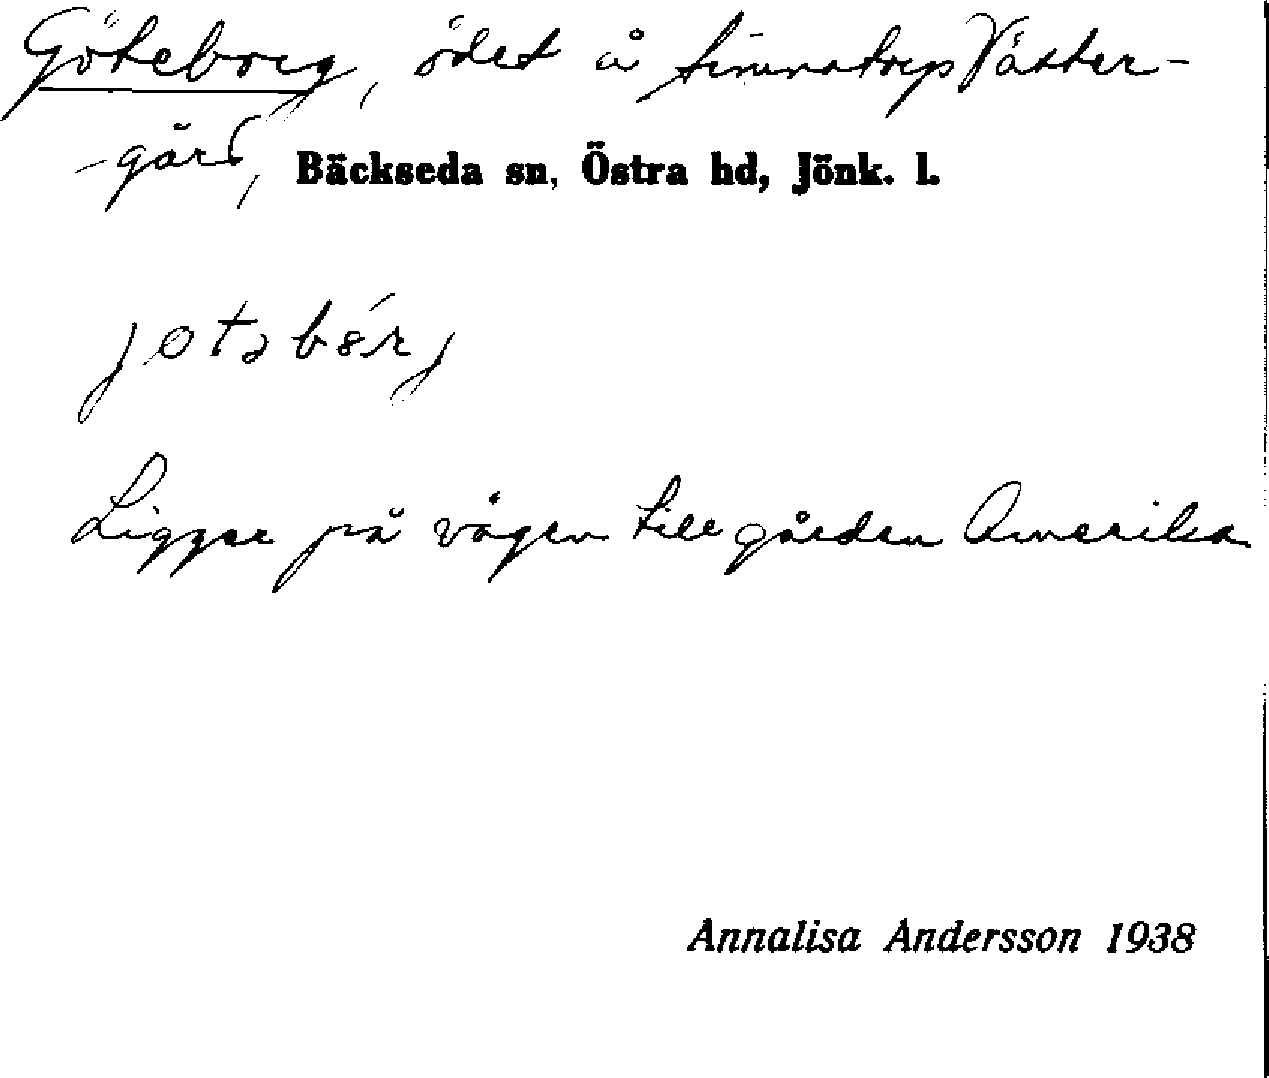 Göteborg, ödet å Simmatorp Väster-
-gård, Bäckseda sn, Östra hd, Jönk. l.
jotəbórj
Ligger på vägen till gården Amerika
Annalisa Andersson 1938